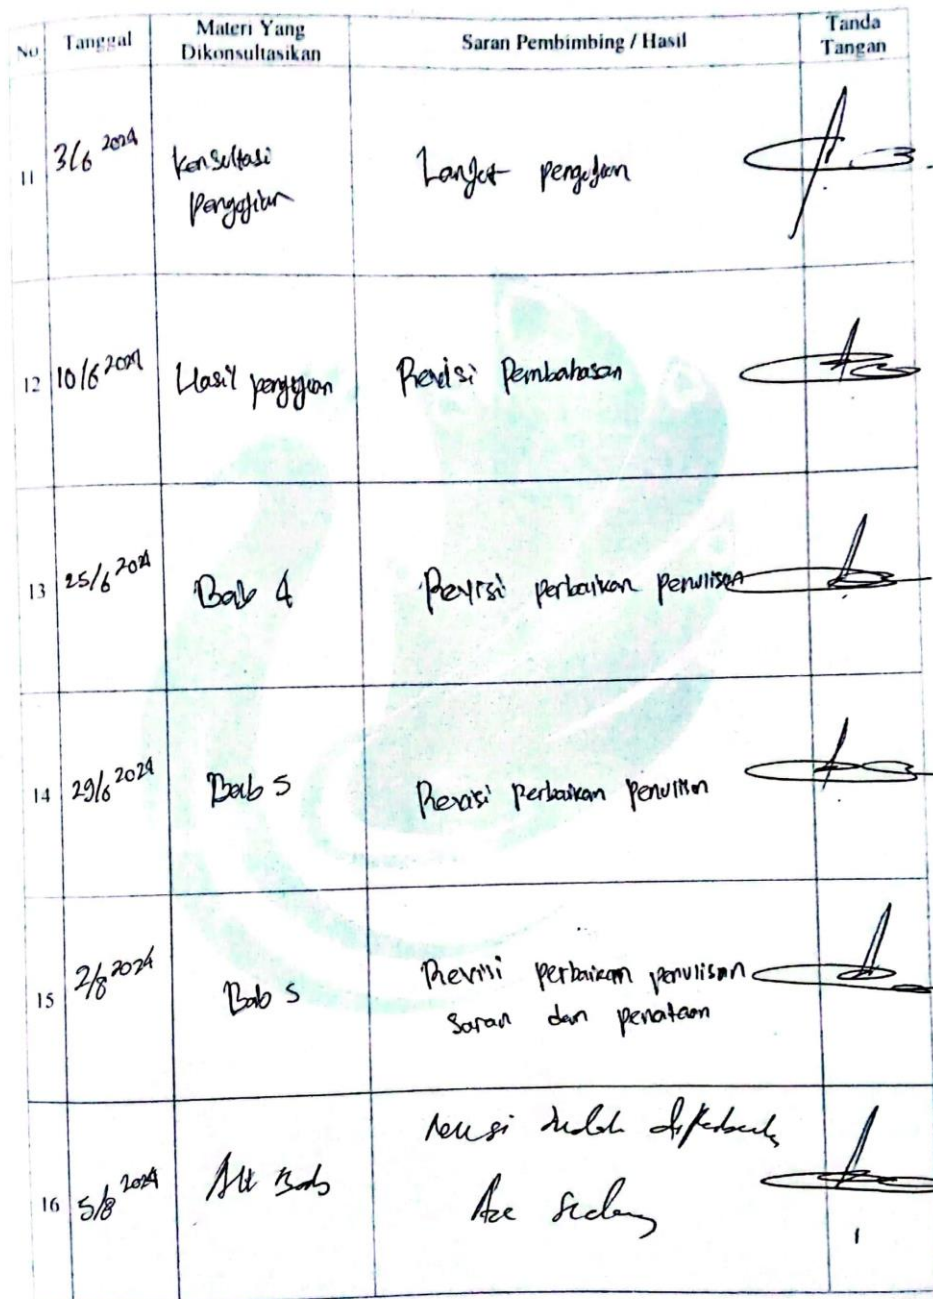 No Tanggal Materi Yang Dikonsultasikan Saran Pembimbing / Hasil Tanda Tangan
11 3/6 2024 Konsultasi pengujian Lanjut pengujian
12 10/6 2024 Hasil pengujian Revisi Pembahasan
13 25/6 2024 Bab 4 Revisi perbaikan penulisan
14 29/6 2024 Bab 5 Revisi perbaikan penulisan
15 2/8 2024 Bab 5 Revisi perbaikan penulisan
saran dan penataan
16 5/8 2024 All Bab revisi sudah diperbaiki
Acc Sidang